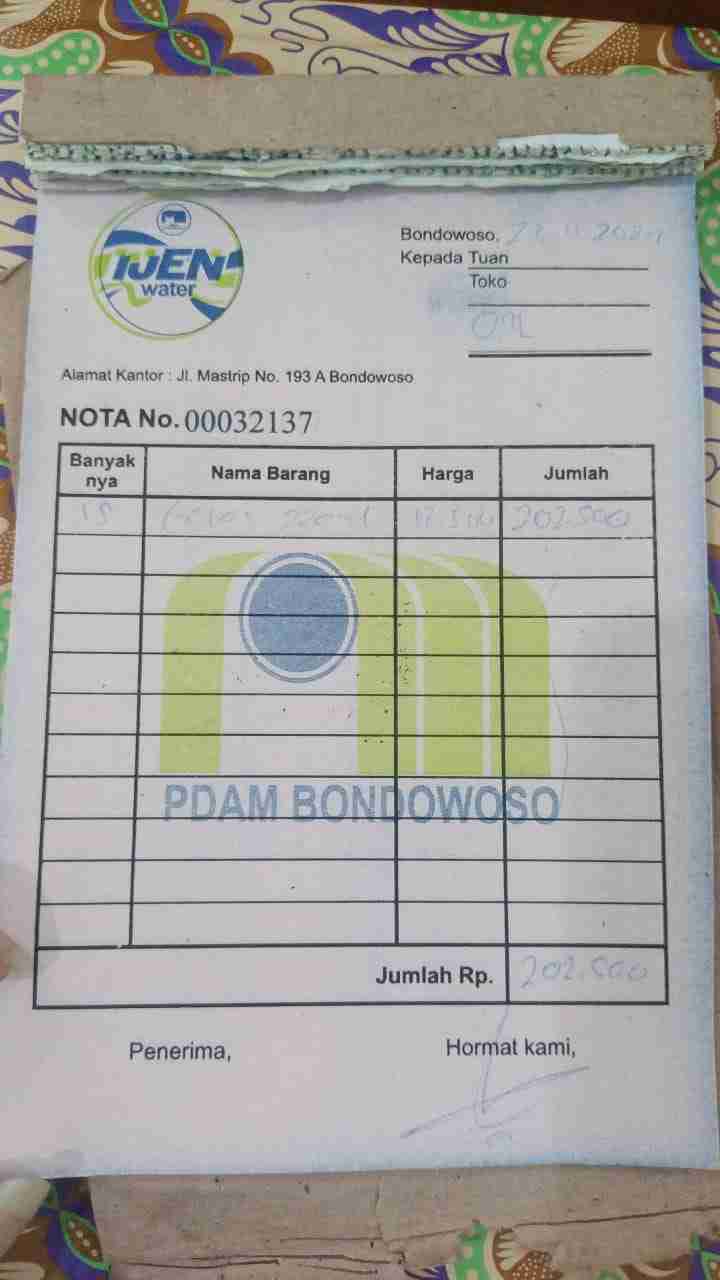 IJEN
water
Bondowoso,
Kepada Tuan
Toko
Alamat Kantor : Jl. Mastrip No. 193 A Bondowoso
NOTA No. 00032137
Banyak nya Nama Barang Harga Jumlah
15 220 ml 202.500
PDAM BONDOWOSO
Jumlah Rp. 202.500
Penerima, Hormat kami,